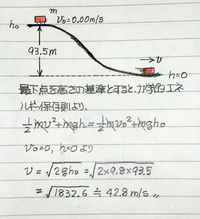 m
h₀
v₀=0.00m/s
93.5m
v
h=0
最下点を高さの基準とすると、力学的エネ
ルギー保存則より、
1/2mv²+mgh=1/2mv₀²+mgh₀
v₀=0, h=0より
v=√2gh₀=√2×9.8×93.5
=√1832.6≒42.8m/s〃